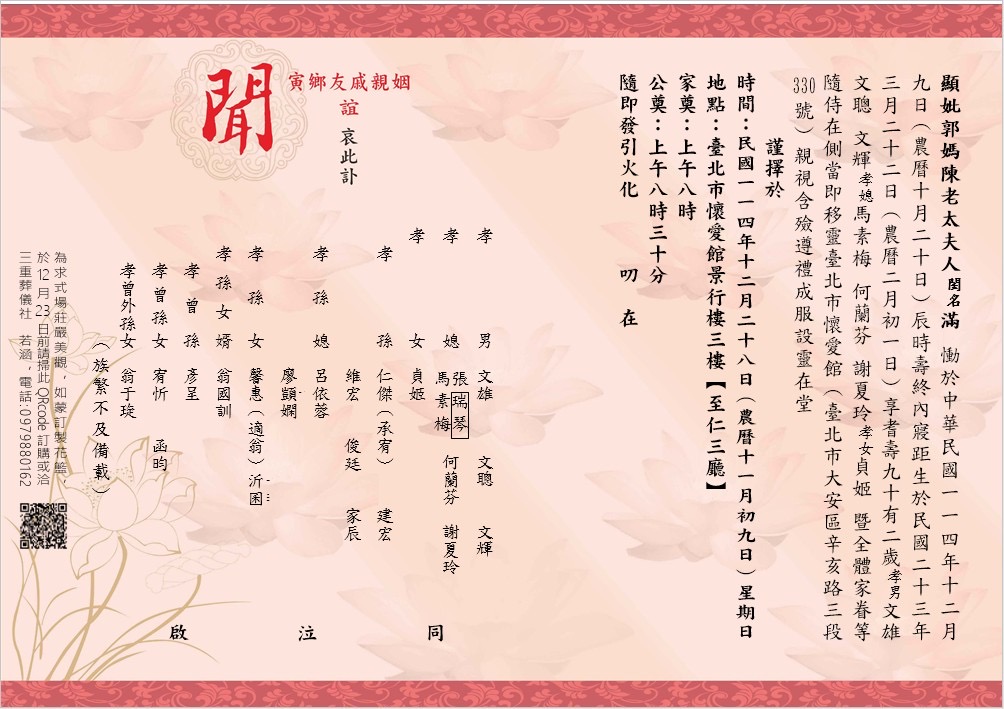 顯妣郭媽陳老太夫人閨名滿　慟於中華民國一一四年十二月
九日（農曆十月二十日）辰時壽終內寢距生於民國二十三年
三月二十二日（農曆二月初一日）享耆壽九十有二歲孝男文雄
文聰　文輝孝媳馬素梅　何蘭芬　謝夏玲孝女貞姬　暨全體家眷等
隨侍在側當即移靈臺北市懷愛館（臺北市大安區辛亥路三段
330號）親視含殮遵禮成服設靈在堂
謹擇於
時間：民國一一四年十二月二十八日（農曆十一月初九日）星期日
地點：臺北市懷愛館景行樓三樓【至仁三廳】
家奠：上午八時
公奠：上午八時三十分
隨即發引火化　叨　在
姻親戚友鄉寅
誼　哀此訃
聞
孝男　文雄　文聰　文輝
孝媳　張瑞琴
馬素梅　何蘭芬　謝夏玲
孝女　貞姬
孝孫　仁傑（承宥）　建宏
維宏　俊廷　家辰
孝孫媳　呂依蓉
廖顗嫻
孝孫女　馨惠（適翁）　沂
孝孫女婿　翁國訓
孝曾孫　彥呈
孝曾孫女　宥忻　函昀
孝曾外孫女　翁于琁
（族繁不及備載）
同　泣　啟
為求式場莊嚴美觀，如蒙訂製花籃，
於12月23日前請掃此QRcode訂購或洽
三重葬儀社　若涵，電話:0979880162